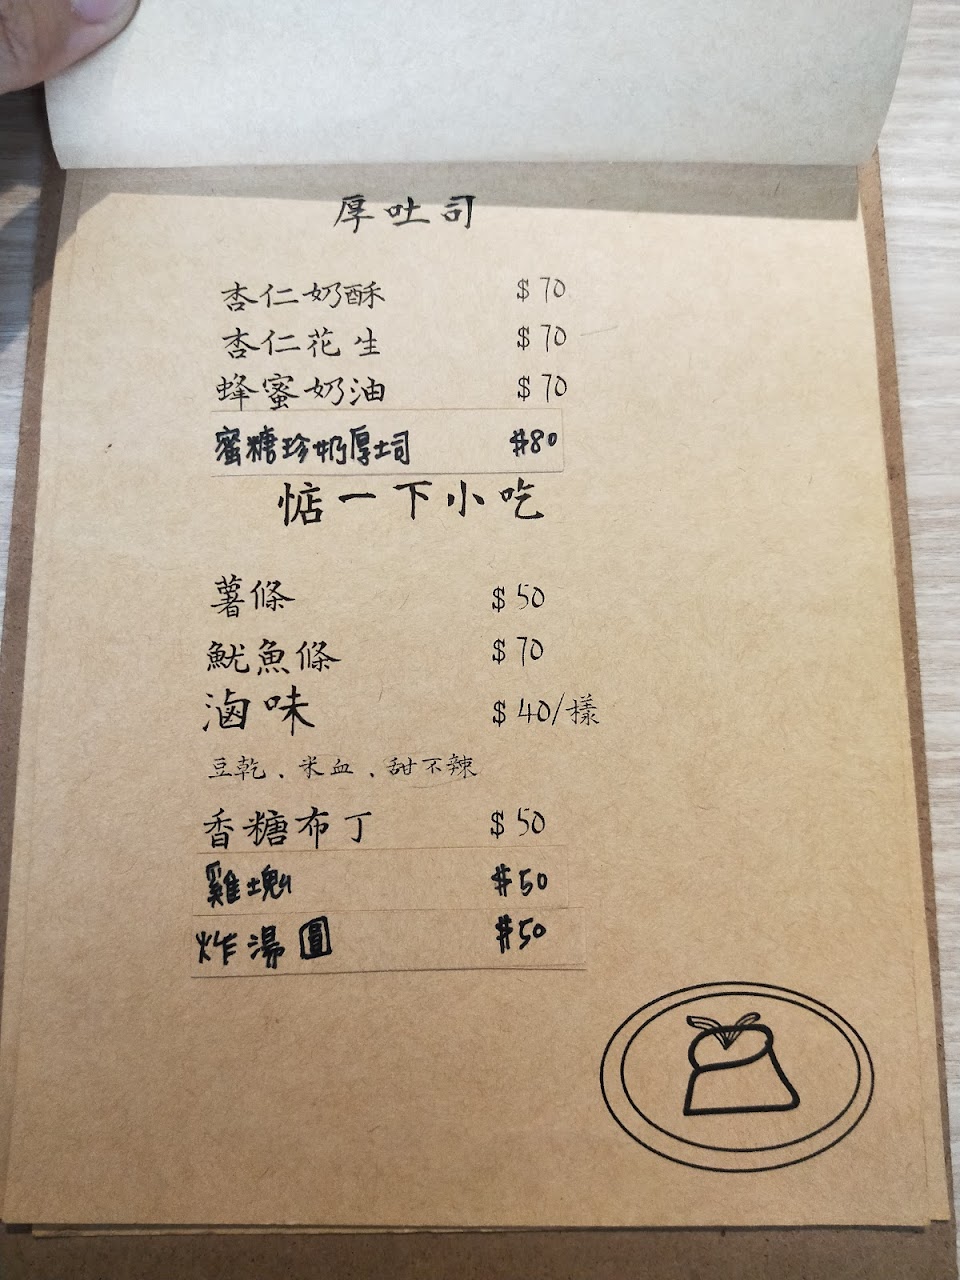 厚吐司
杏仁奶酥 $70
杏仁花生 $70
蜂蜜奶油 $70
蜜糖珍奶厚土司 $80
惦一下小吃
薯條 $50
魷魚條 $70
滷味 $40/樣
豆乾、米血、甜不辣
香糖布丁 $50
雞塊 $50
炸湯圓 $50